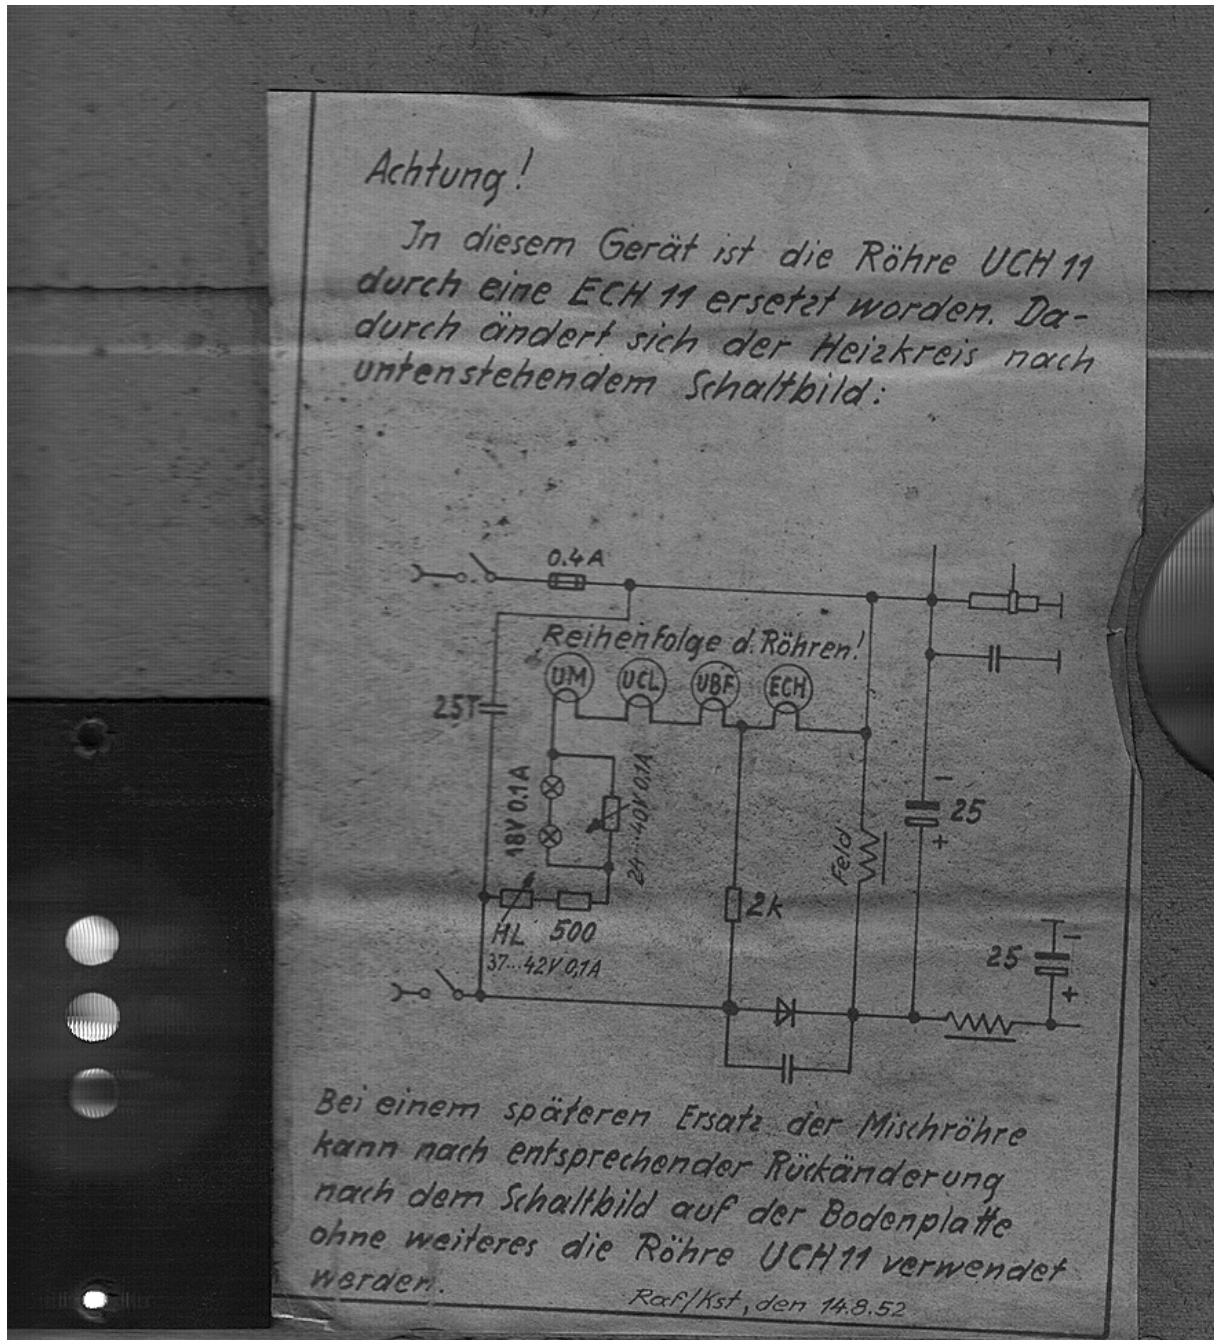 Achtung!
In diesem Gerät ist die Röhre UCH 11
durch eine ECH 11 ersetzt worden. Da-
durch ändert sich der Heizkreis nach
untenstehendem Schaltbild:
0.4 A
Reihenfolge d. Röhren!
UM UCL UBF ECH
25T
18V 0.1A
24...40V 0.1A
Feld
- 25 +
HL 500
37...42V 0,1A
2k
25 - +
Bei einem späteren Ersatz der Mischröhre
kann nach entsprechender Rückänderung
nach dem Schaltbild auf der Bodenplatte
ohne weiteres die Röhre UCH 11 verwendet
werden.
Raf/Kst, den 14.8.52